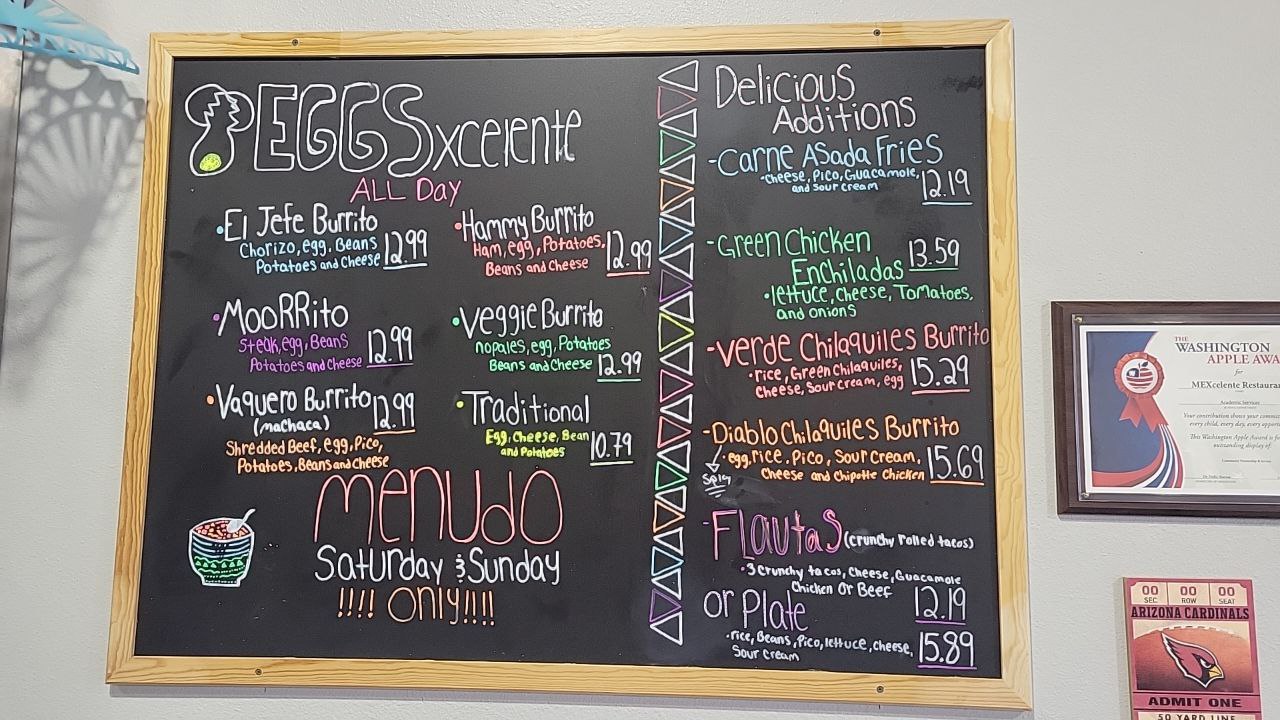 EGGSxcelente
ALL Day
•El Jefe Burrito
Chorizo, egg, Beans
Potatoes and Cheese
12.99
•Hammy Burrito
Ham, egg, Potatoes,
Beans and Cheese
12.99
•MooRRito
Steak, egg, Beans
Potatoes and Cheese
12.99
•Veggie Burrito
nopales, egg, Potatoes
Beans and Cheese
12.99
•Vaquero Burrito
(machaca)
12.99
Shredded Beef, egg, Pico,
Potatoes, Beans and Cheese
•Traditional
Egg, Cheese, Bean
and Potatoes
10.79
menudo
Saturday & Sunday
!!!! only!!!!
Delicious
Additions
-Carne Asada Fries
•Cheese, Pico, Guacamole,
and Sour cream
12.19
-Green Chicken
Enchiladas
13.59
•lettuce, Cheese, Tomatoes,
and onions
-Verde Chilaquiles Burrito
•rice, Green Chilaquiles,
Cheese, Sour cream, egg
15.29
-Diablo Chilaquiles Burrito
•egg, rice, Pico, Sour cream,
Cheese and Chipotle Chicken
15.69
-Flautas (crunchy rolled tacos)
•3 crunchy tacos, Cheese, Guacamole
Chicken Or Beef
12.19
or Plate
•rice, Beans, Pico, lettuce, cheese,
Sour cream
15.89
THE
WASHINGTON
APPLE AWA
for
MEXcelente Restaura
Academic Services
Your contribution shows your
every child, every day, every
This Washington Apple Award is
outstanding display of:
00 00 00
SEC ROW SEAT
ARIZONA CARDINALS
ADMIT ONE
50 YARD LINE